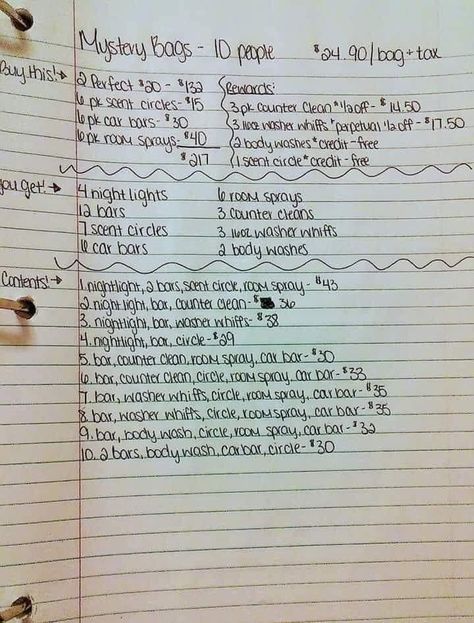 Mystery Bags - 10 people $24.90/bag + tax
Buy this! →
2 Perfect $20 - $132
6 pk scent circles - $15
6 pk car bars - $30
6 pk room sprays - $40
$217
Rewards:
3 pk counter clean *1/2 off - $14.50
3 16oz washer whiffs *perpetual 1/2 off - $17.50
2 body washes *credit - free
1 scent circle *credit - free
You get! →
4 night lights
12 bars
7 scent circles
6 car bars
6 room sprays
3 counter cleans
3 16oz washer whiffs
2 body washes
Contents! →
1. nightlight, 2 bars, scent circle, room spray - $43
2. nightlight, bar, counter clean - $36
3. nightlight, bar, washer whiffs - $38
4. nightlight, bar, circle - $29
5. bar, counter clean, room spray, car bar - $30
6. bar, counter clean, circle, room spray, car bar - $33
7. bar, washer whiffs, circle, room spray, car bar - $35
8. bar, washer whiffs, circle, room spray, car bar - $35
9. bar, body wash, circle, room spray, car bar - $32
10. 2 bars, body wash, car bar, circle - $30